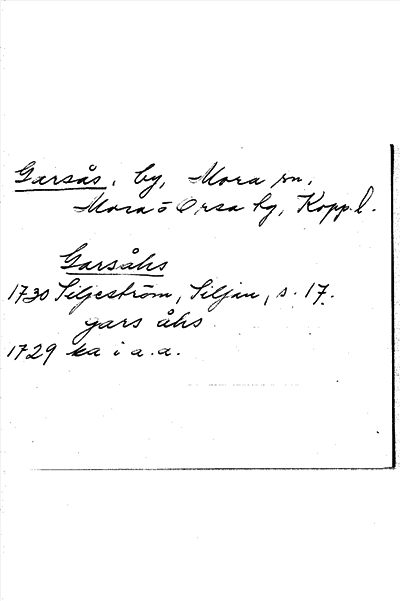 Garsås, by, Mora sn,
Mora o Orsa tg, Kopp. l.
Garsåhs
1730 Siljeström, Siljan, s. 17.
gars åhs
1729 ka i a. a.